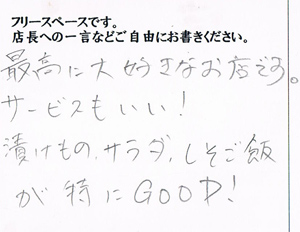 フリースペースです。
店長への一言などご自由にお書きください。
最高に大好きなお店です。
サービスもいい!
漬けもの、サラダ、しそご飯
が特にGOOD!